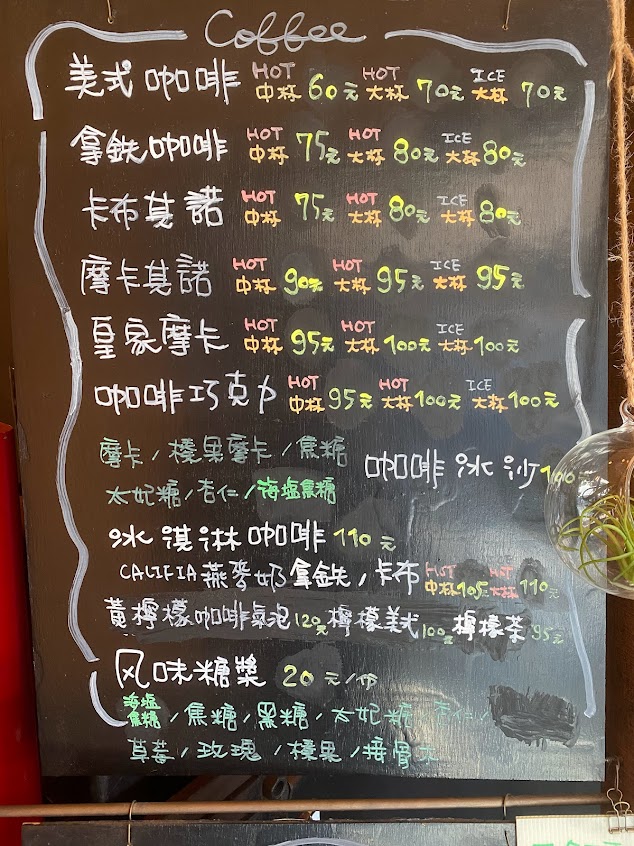 Coffee
美式咖啡 HOT 中杯 60元 HOT 大杯 70元 ICE 大杯 70元
拿鉄咖啡 HOT 中杯 75元 HOT 大杯 80元 ICE 大杯 80元
卡布其諾 HOT 中杯 75元 HOT 大杯 80元 ICE 大杯 80元
摩卡其諾 HOT 中杯 90元 HOT 大杯 95元 ICE 大杯 95元
皇家摩卡 HOT 中杯 95元 HOT 大杯 100元 ICE 大杯 100元
咖啡巧克力 HOT 中杯 95元 HOT 大杯 100元 ICE 大杯 100元
摩卡/榛果摩卡/焦糖
太妃糖/杏仁/海塩焦糖
咖啡冰沙
冰淇淋咖啡 110元
CALIFIA燕麥奶拿鉄/卡布 HOT 中杯105元 HOT 大杯110元
黃檸檬咖啡氣泡120元 檸檬美式100元 檸檬茶95元
风味糖漿 20元/份
海塩焦糖/焦糖/黑糖/太妃糖 杏仁/
草莓/玫瑰/榛果/接骨木